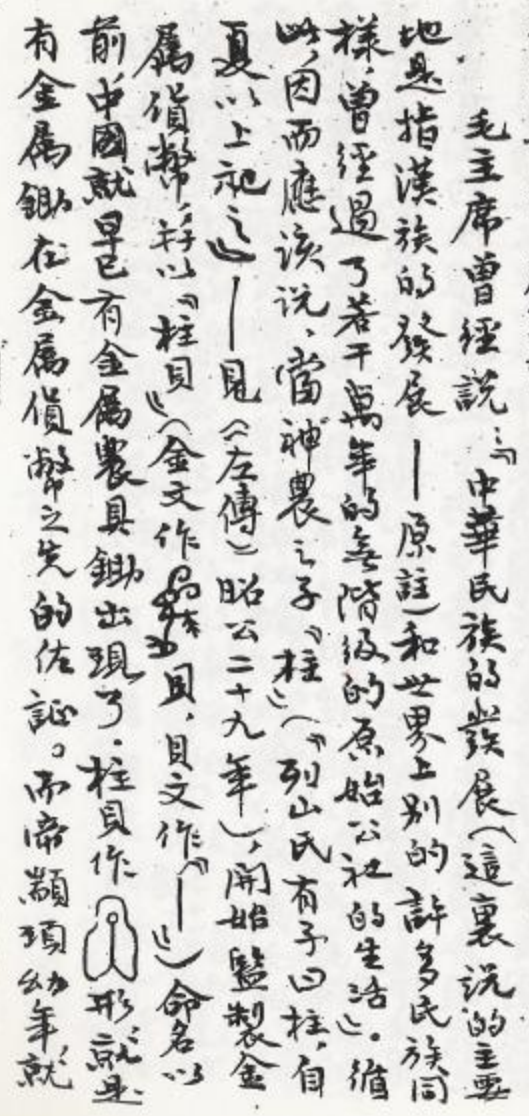 毛主席曾經説：『中華民族的發展（這裏説的主要
地是指漢族的發展——原註）和世界上别的許多民族同
樣，曾經過了若干萬年的無階级的原始公社的生活』。循
此，因而應该说，當神農之子『柱』（『列山氏有子曰柱，自
夏以上祀之』——見《左傳》昭公二十九年），開始監製金
属貨幣，并以『柱貝』（金文作貝，貝文作『—』）命名以
前，中國就早已有金属農具鋤出現了。柱貝作形，就是
有金属鋤在金属貨幣之先的佐証。而帝顓頊幼年，就